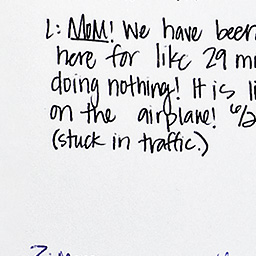 L: MoM! We have been
here for like 29 m
doing nothing! It is li
on the airplane! 6/2
(stuck in traffic.)